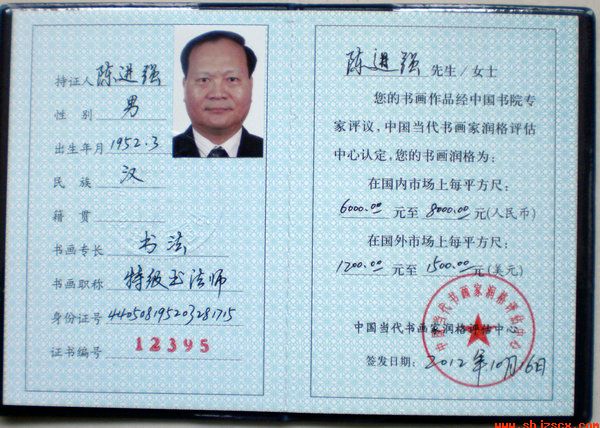 持证人 陈进强
性 别 男
出生年月 1952.3
民 族 汉
籍 贯
书画专长 书法
书画职称 特级书法师
身份证号 440508195203281715
证书编号 12395
陈进强 先生/女士
您的书画作品经中国书院专
家评议，中国当代书画家润格评估
中心认定，您的书画润格为：
在国内市场上每平方尺：
6000.00 元至 8000.00 元(人民币)
在国外市场上每平方尺：
1200.00 元至 1500.00 元(美元)
中国当代书画家润格评估中心
中国当代书画家润格评估中心
签发日期：2012年10月16日
www.shjzscx.com